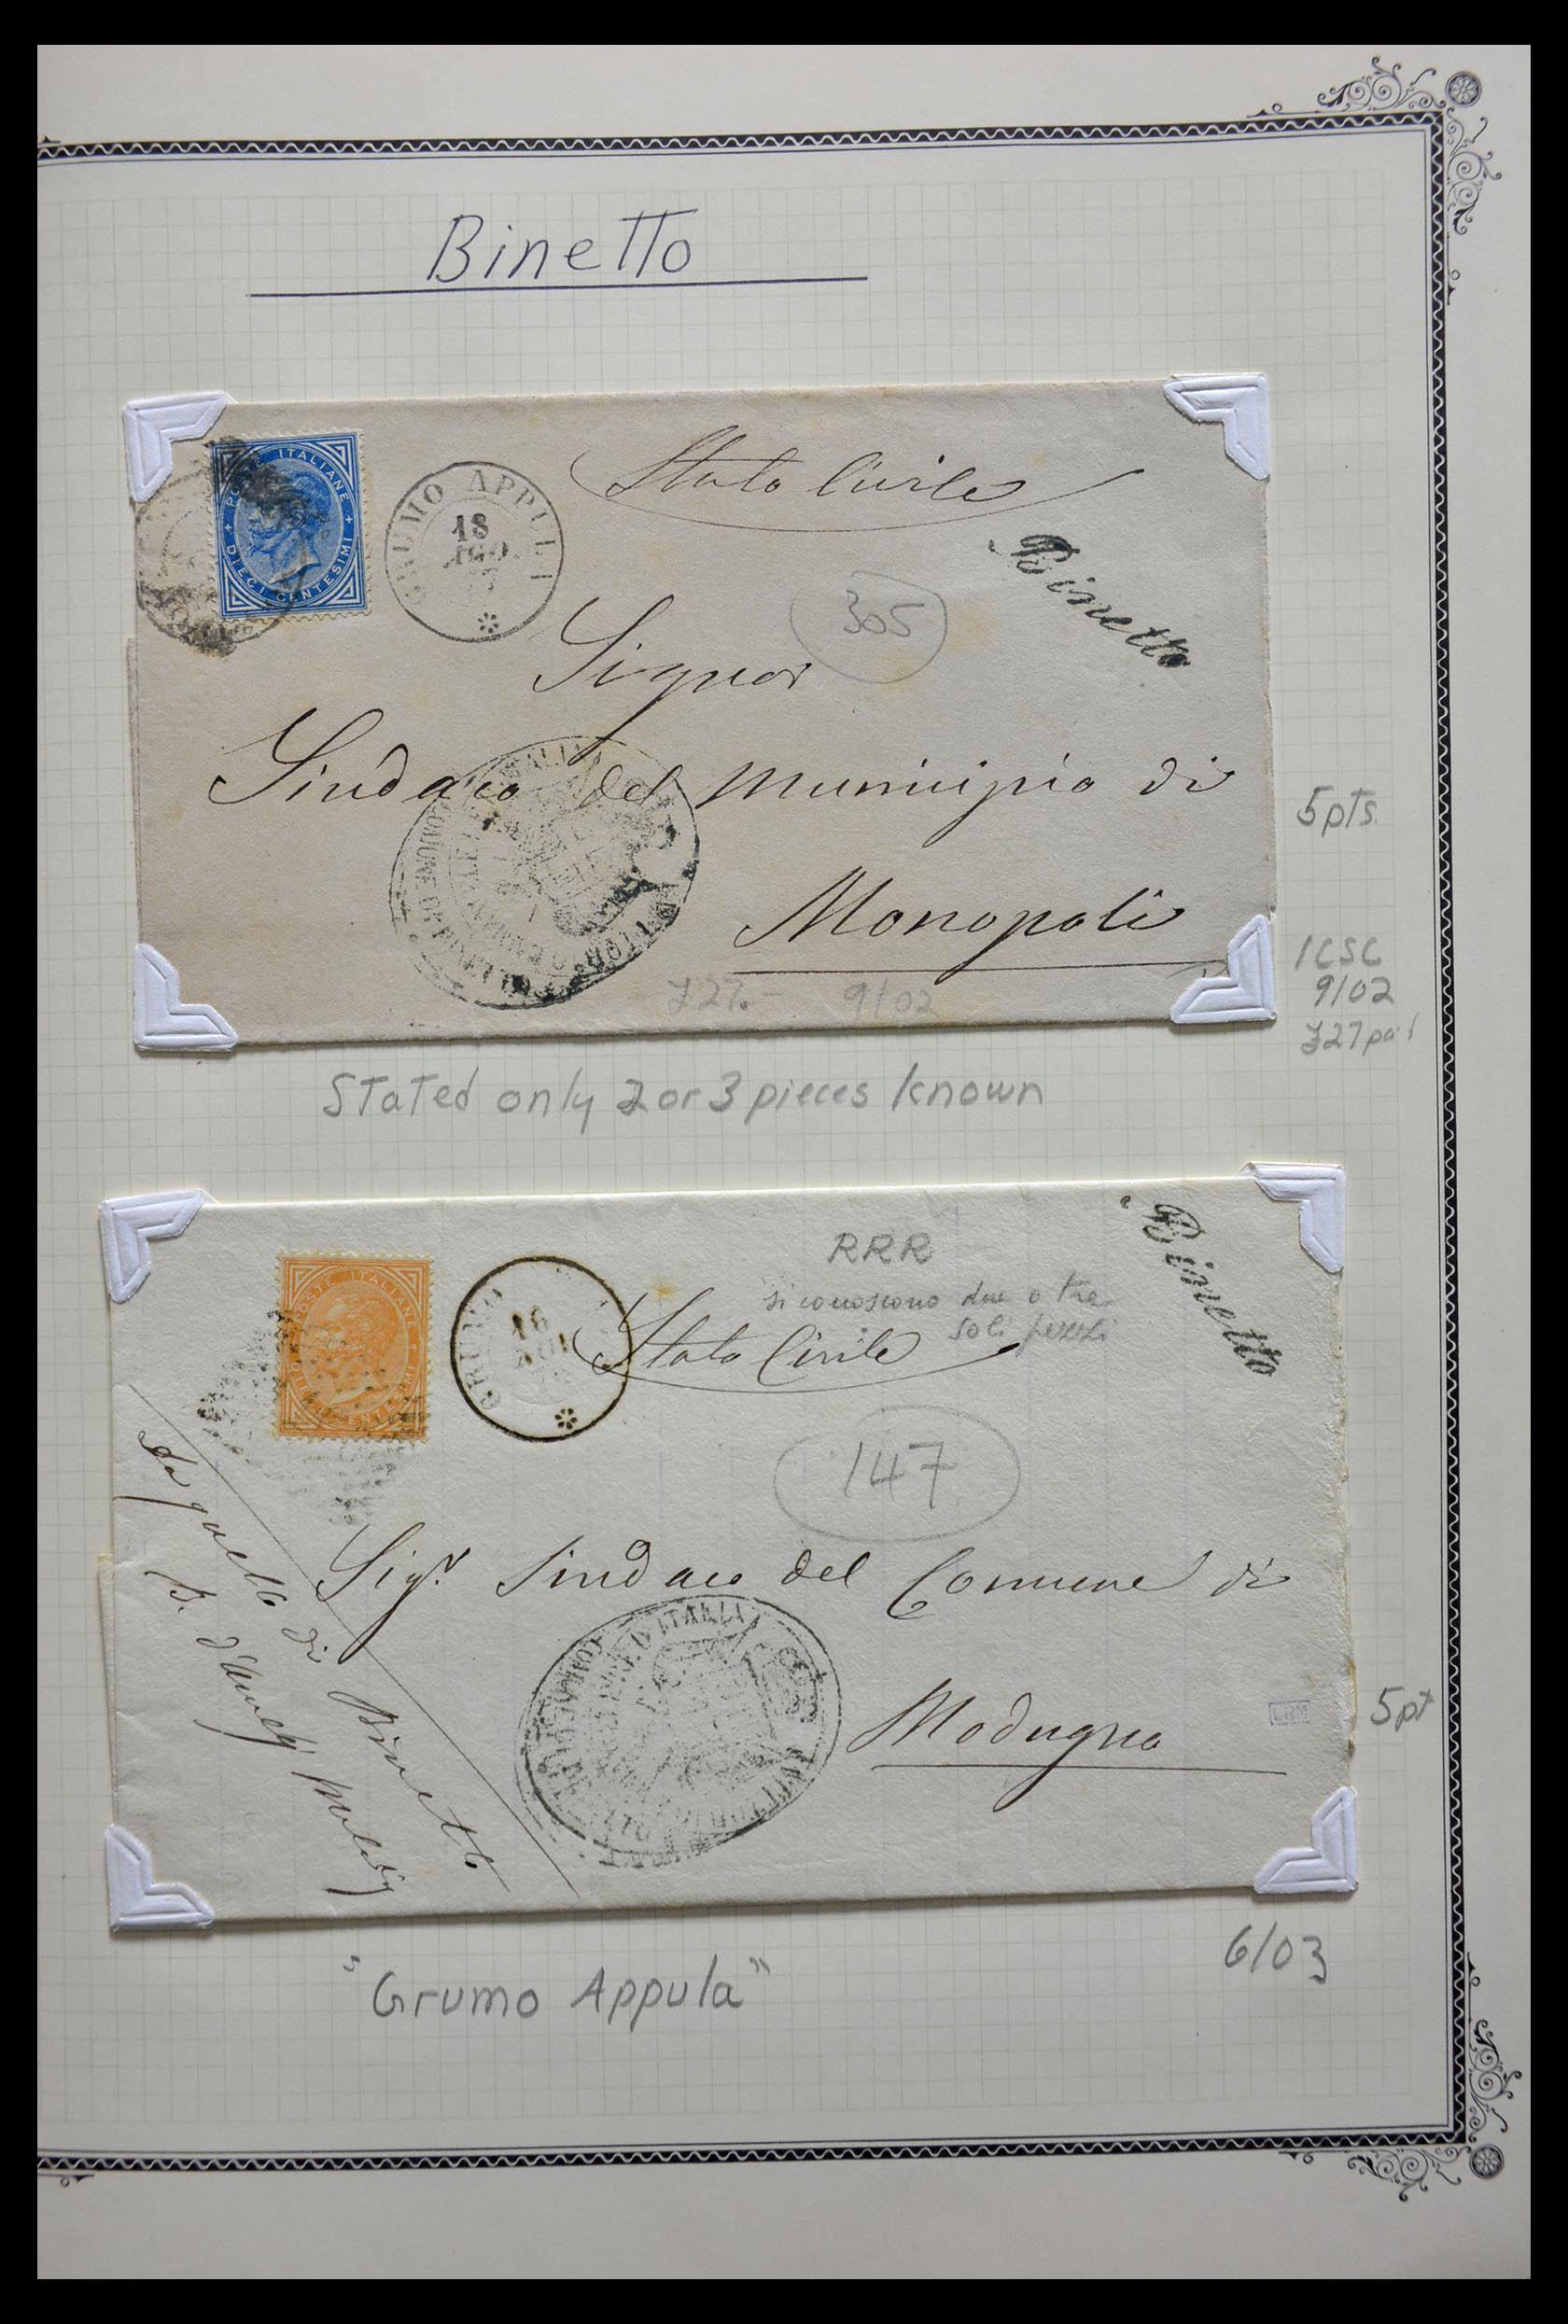 Binetto
POSTE ITALIANE
DIECI CENTESIMI
GRUMO APPULI
18
AGO
Stato Civile
Binetto
305
Signor
Sindaco del Municipio di
Monopoli
COMUNE DI
£27.- 9/02
5pts.
ICSC
9/02
£27 paid
Stated only 2 or 3 pieces known
Binetto
RRR
si conoscono due o tre
soli pezzi
POSTE ITALIANE
DIECI CENTESIMI
GRUMO
16
Stato Civile
147
Sigr Sindaco del Comune di
Modugno
da quello di Binetto
REGNO D'ITALIA
5pt
6/03
"Grumo Appula"